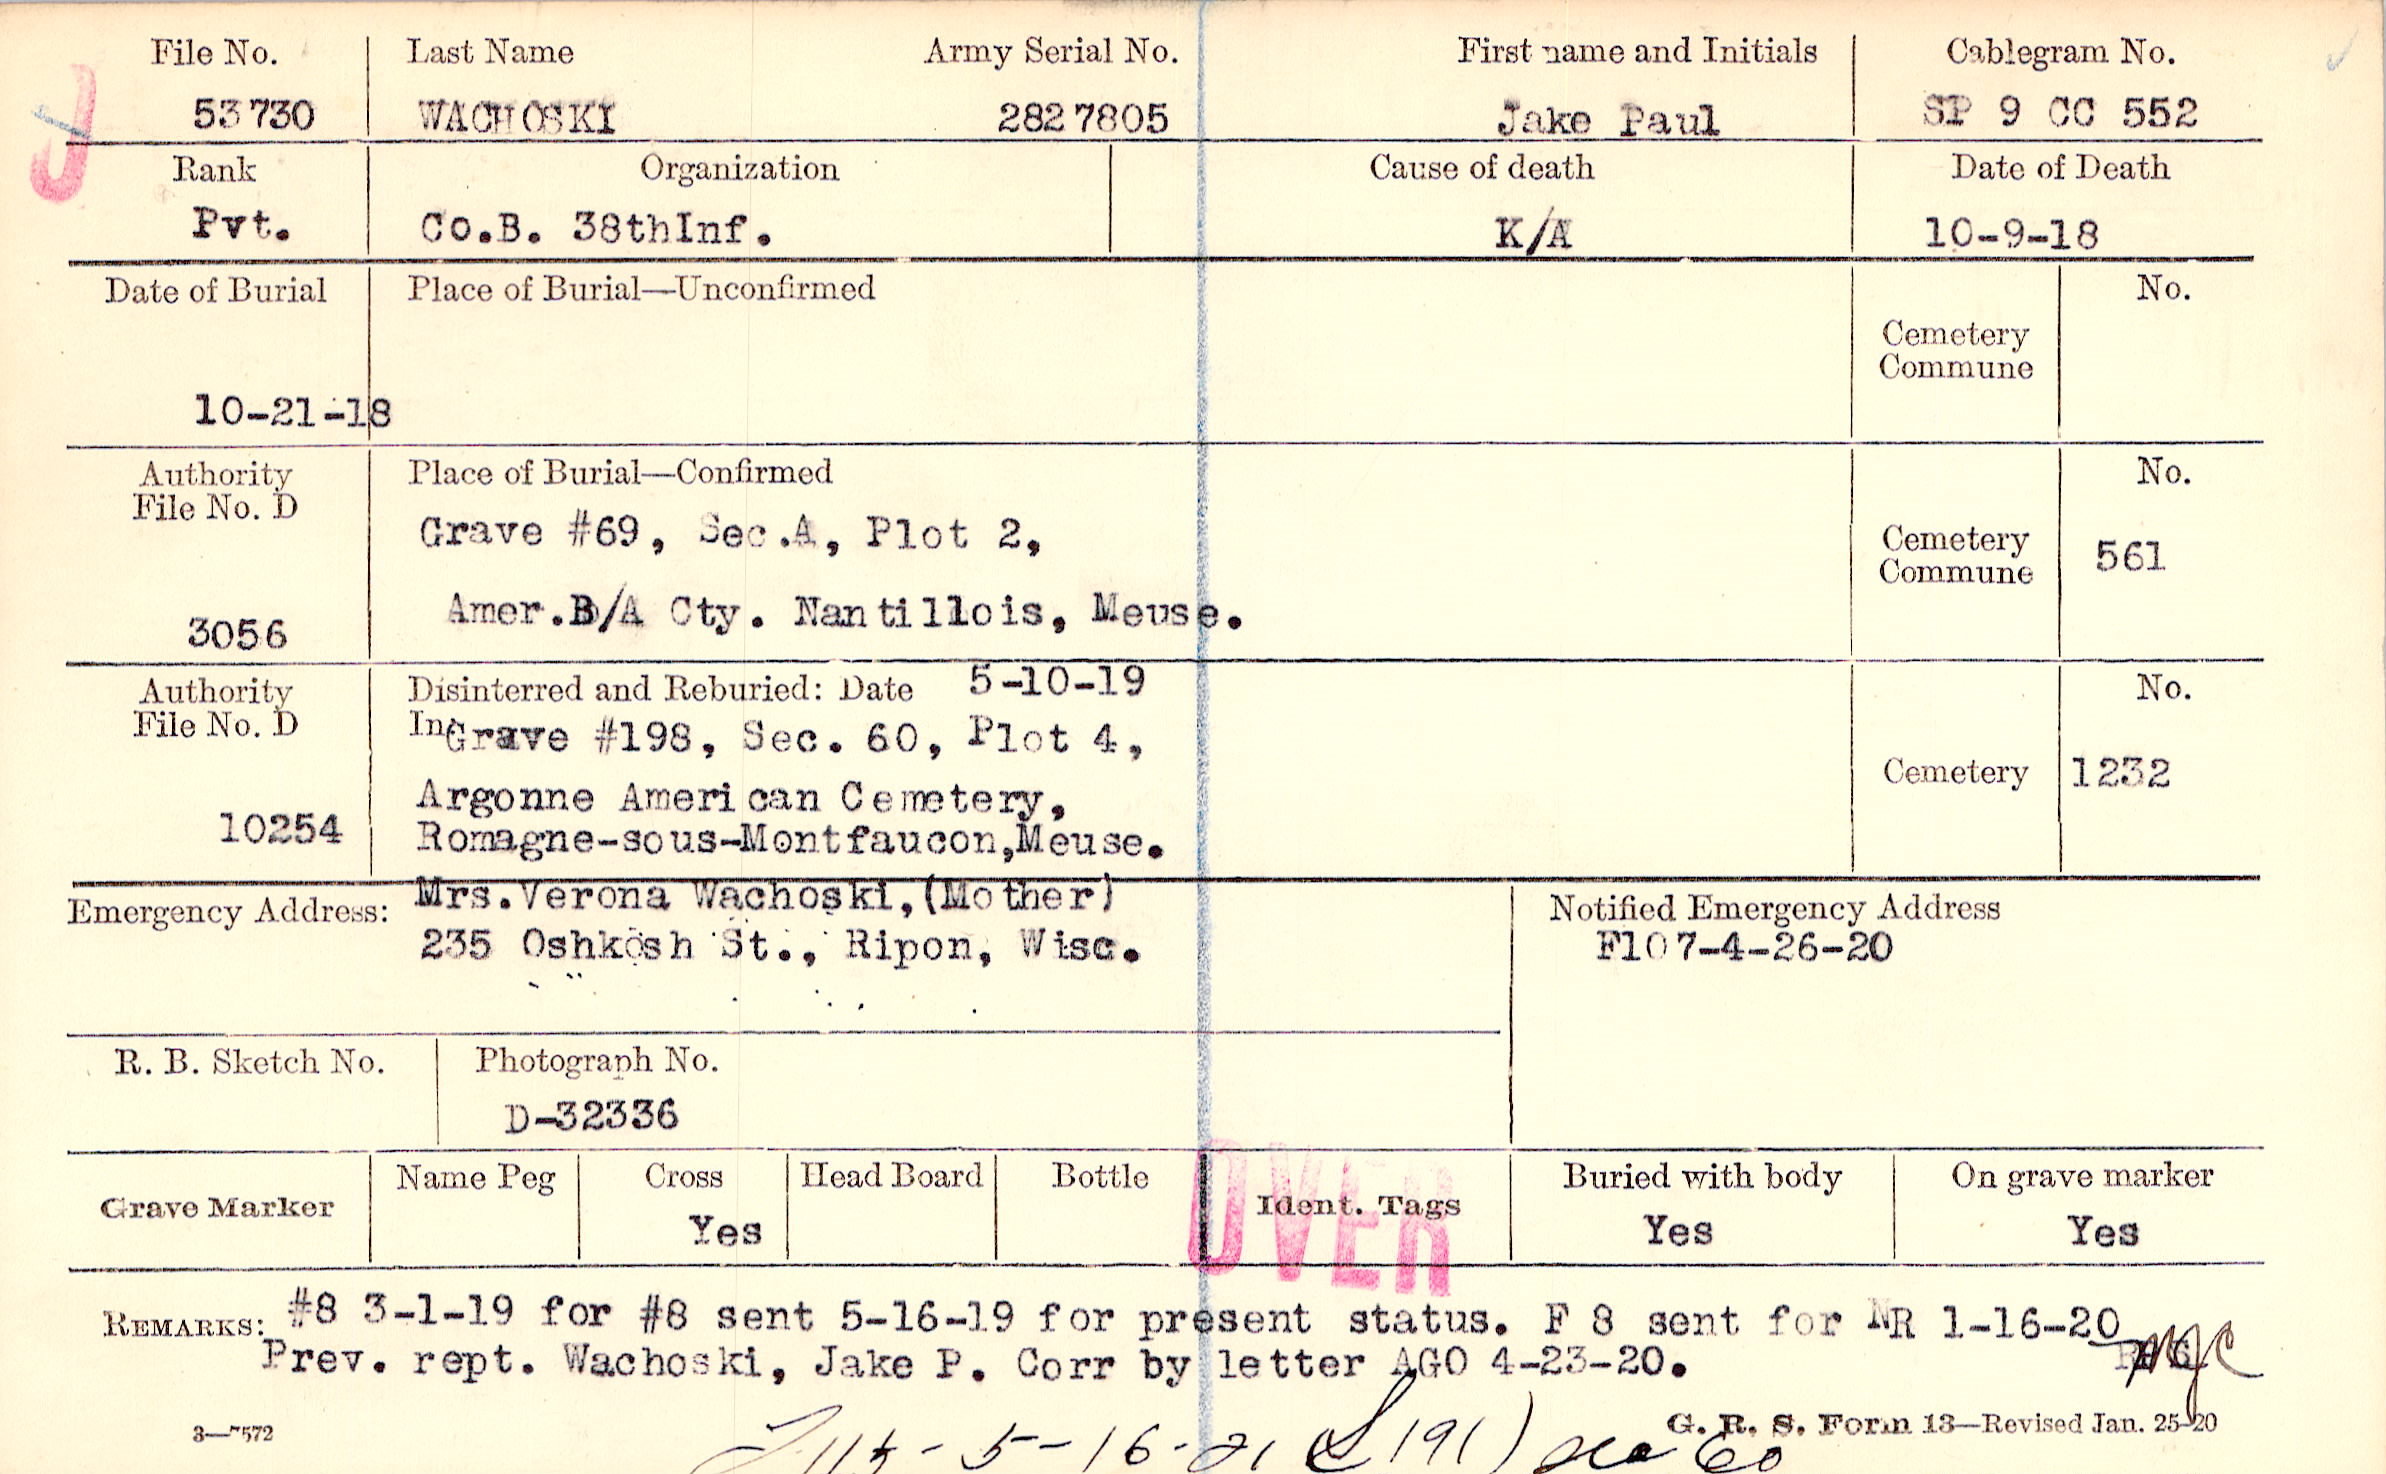 File No. Last Name Army Serial No. First name and Initials Cablegram No.
J
53730 WACHOSKI 2827805 Jake Paul SP 9 CC 552
Rank Organization Cause of death Date of Death
Pvt. Co.B. 38thInf. K/A 10-9-18
Date of Burial Place of Burial—Unconfirmed No.
Cemetery
Commune
10-21-18
Authority Place of Burial—Confirmed No.
File No. D
Grave #69, Sec.A, Plot 2,
Cemetery 561
Commune
Amer.B/A Cty. Nantillois, Meuse.
3056
Authority Disinterred and Reburied: Date 5-10-19 No.
File No. D In Grave #198, Sec. 60, Plot 4,
Cemetery 1232
Argonne American Cemetery,
10254 Romagne-sous-Montfaucon,Meuse.
Emergency Address: Mrs.Verona Wachoski,(Mother) Notified Emergency Address
235 Oshkosh St., Ripon, Wisc. F107-4-26-20
R. B. Sketch No. Photograph No.
D-32336
Grave Marker Name Peg Cross Head Board Bottle Ident. Tags Buried with body On grave marker
Yes Yes Yes
OVER
REMARKS: #8 3-1-19 for #8 sent 5-16-19 for present status. F 8 sent for NR 1-16-20
Prev. rept. Wachoski, Jake P. Corr by letter AGO 4-23-20.
3—7572 G. R. S. Form 13—Revised Jan. 25-20
5-16-21